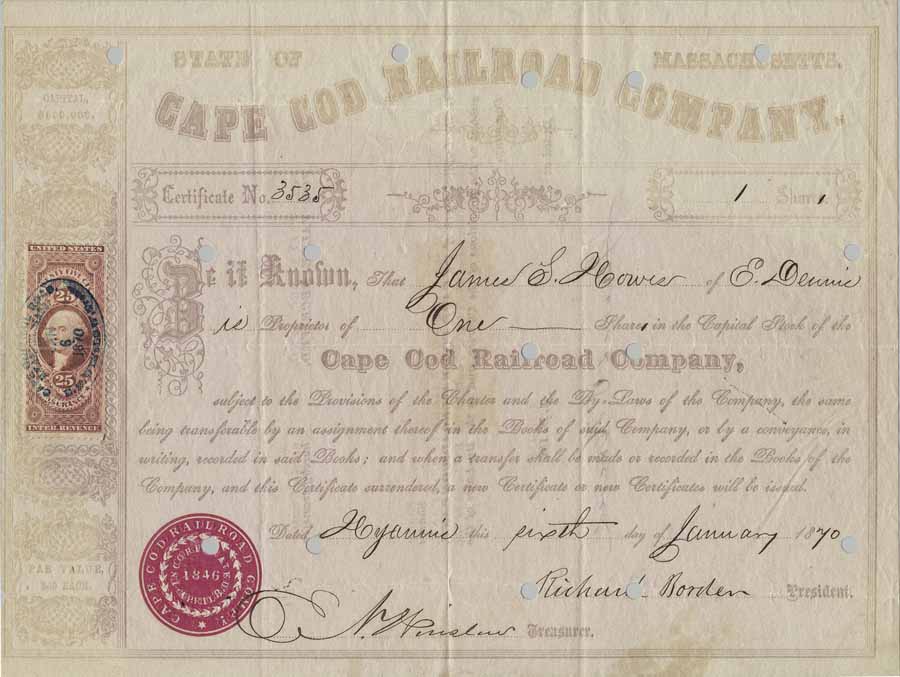 STATE OF MASSACHUSETTS.
CAPE COD RAILROAD COMPANY.
CAPITAL,
Certificate No. 3535
1 Share,
UNITED STATES
25 25
INTER. REVENUE
6
1870
Be it Known, That James S. Howes of E. Dennis
is Proprietor of One Share, in the Capital Stock of the
Cape Cod Railroad Company,
subject to the Provisions of the Charter and the By-Laws of the Company, the same
being transferable by an assignment thereof in the Books of said Company, or by a conveyance, in
writing, recorded in said Books; and when a transfer shall be made or recorded in the Books of the
Company, and this Certificate surrendered, a new Certificate or new Certificates will be issued.
Dated Hyannis this sixth day of January 1870
PAR VALUE,
EACH.
CAPE COD RAILROAD COMPY.
INCORPORATED
1846
Richard Borden President.
E. N. Winslow Treasurer.